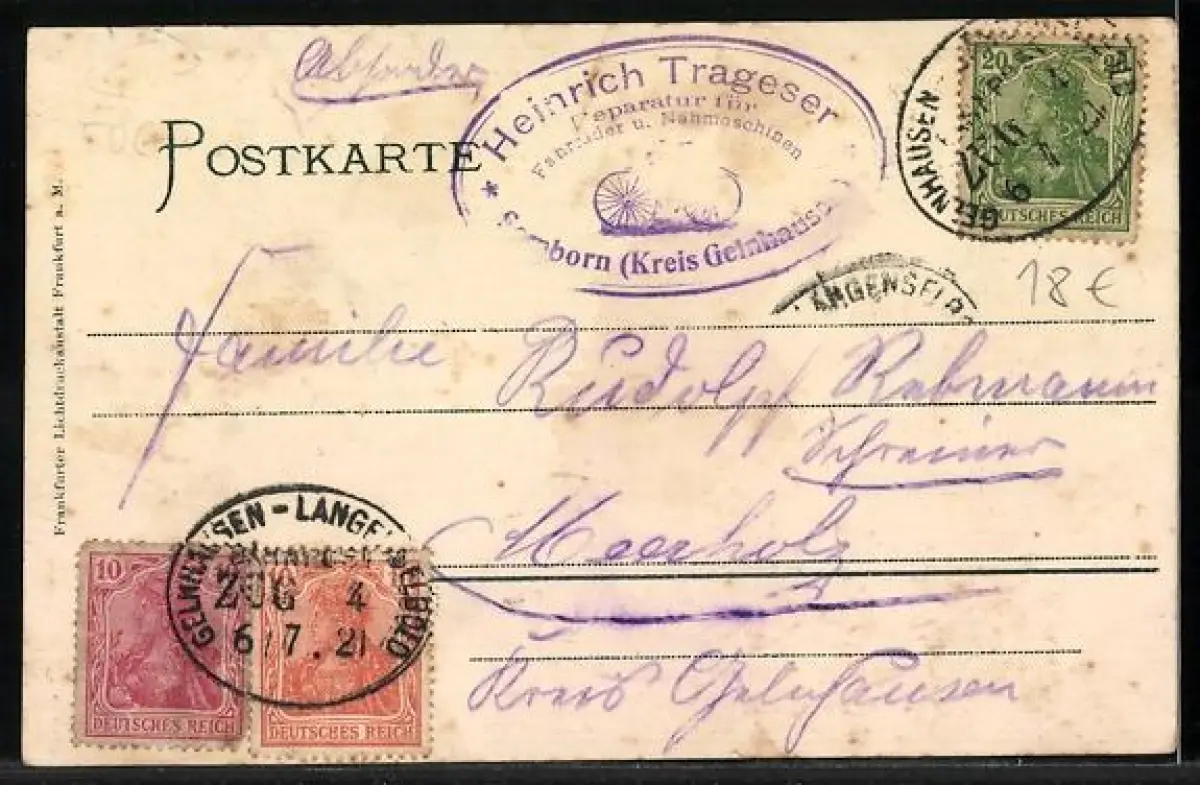 Absender
POSTKARTE
* Heinrich Trageser
Reparatur für
Fahrräder u. Nähmaschinen
born (Kreis Gelnhause
20 20
GELNHAUSEN
ZUG
DEUTSCHES REICH
LANGENSELB
18 €
Frankfurter Lichtdruckanstalt Frankfurt a. M.
Familie Rudolf Rebmann
Schreiner
Meerholz
Kreis Gelnhausen
GELNHAUSEN - LANGENSELBOLD
BAHNPOST
ZUG 4
6/7.21
10
DEUTSCHES REICH
DEUTSCHES REICH